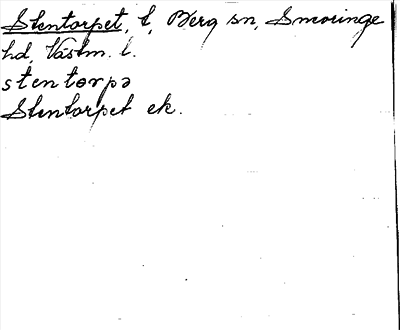 Stentorpet, t, Berg sn, Snevringe
hd, Västm. l.
stentorpə
Stentorpet ek.